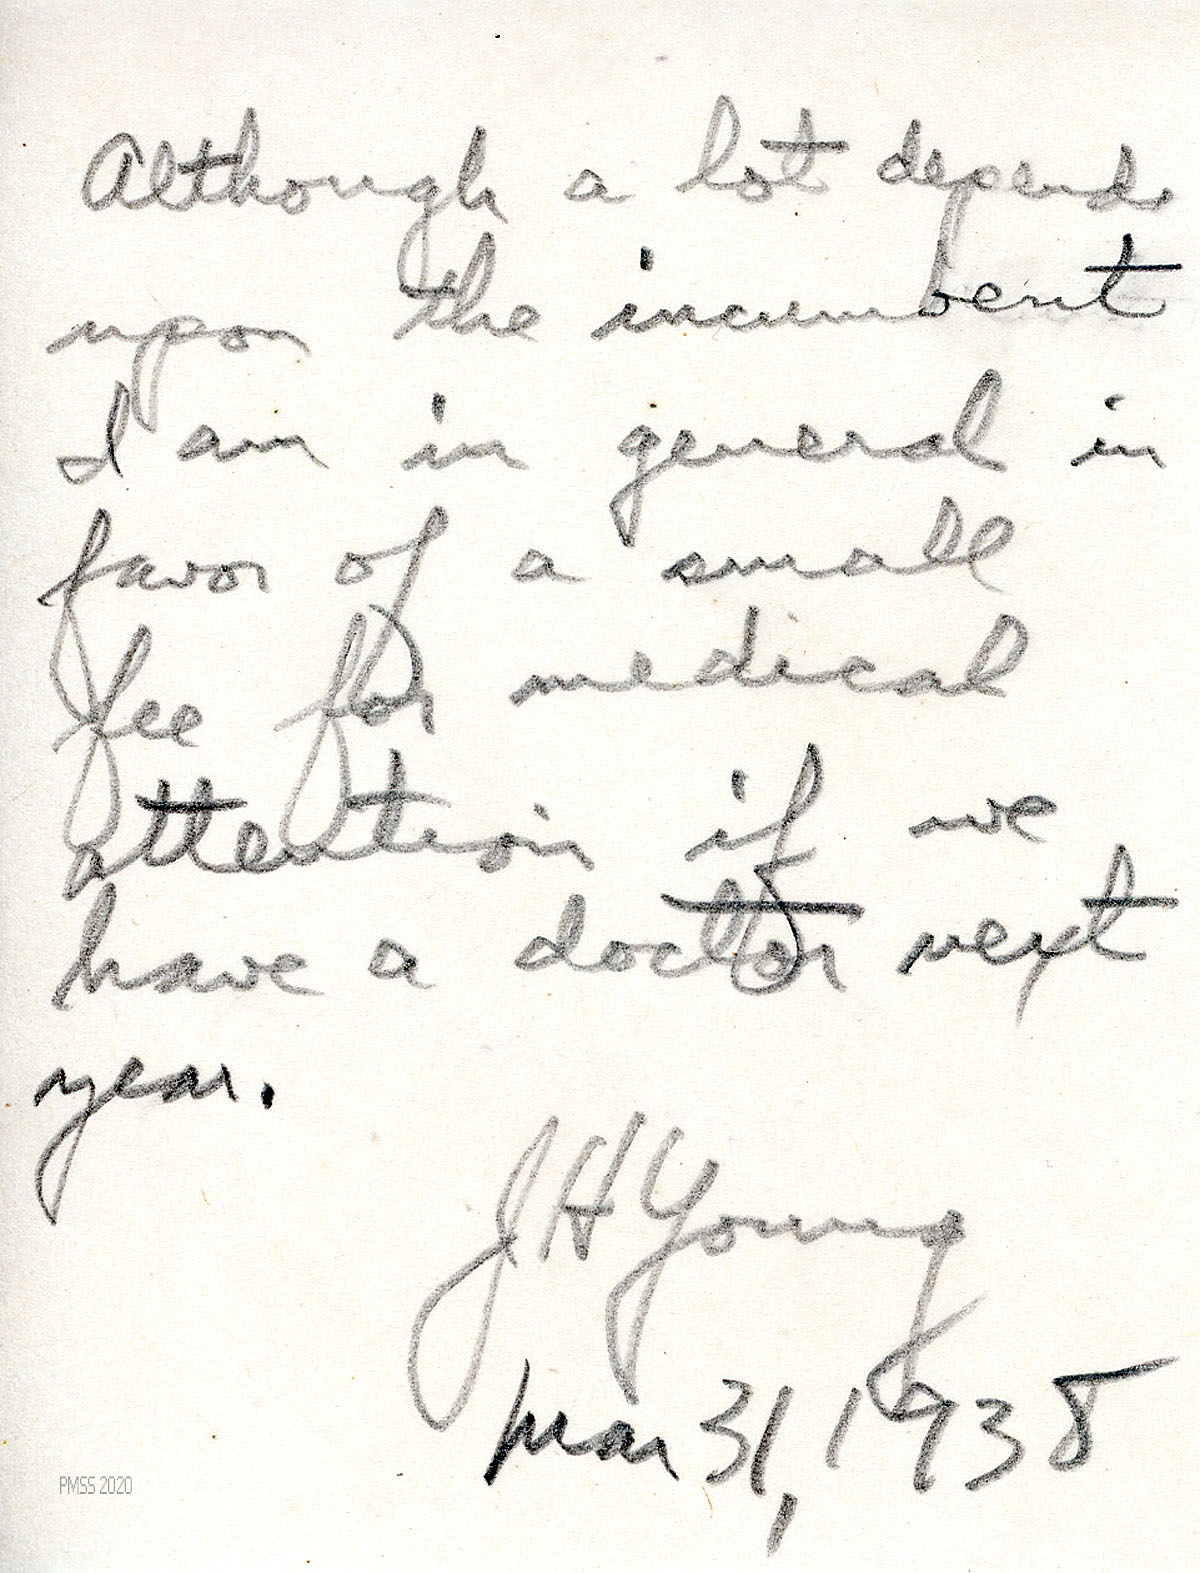 Although a lot depends
upon the incumbent
I am in general in
favor of a small
fee for medical
attention if we
have a doctor next
year.
J H Young
Mar 31, 1938
PMSS 2020